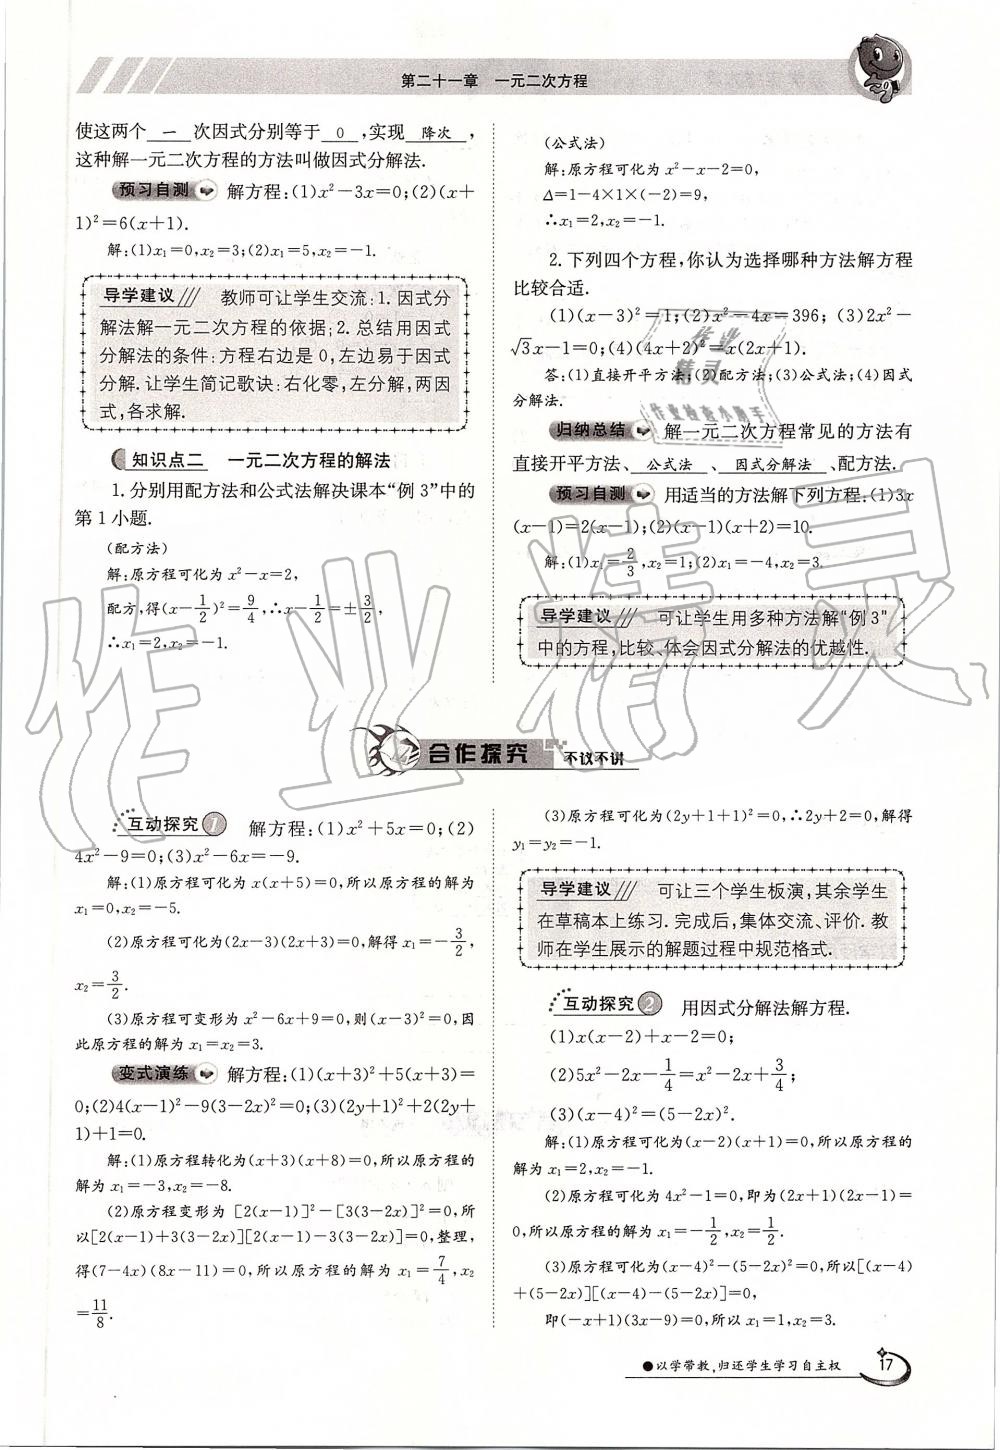 第二十一章 一元二次方程
使这两个 一 次因式分别等于 0 ,实现 降次 ,
这种解一元二次方程的方法叫做因式分解法.
预习自测 解方程:(1)x²-3x=0;(2)(x+
1)²=6(x+1).
解:(1)x₁=0,x₂=3;(2)x₁=5,x₂=-1.
导学建议 教师可让学生交流:1.因式分
解法解一元二次方程的依据;2.总结用因式
分解法的条件:方程右边是0,左边易于因式
分解.让学生简记歌诀:右化零,左分解,两因
式,各求解.
知识点二 一元二次方程的解法
1.分别用配方法和公式法解决课本“例3”中的
第1小题.
(配方法)
解:原方程可化为 x²-x=2,
配方,得(x-1/2)²=9/4,∴x-1/2=±3/2,
∴x₁=2,x₂=-1.
(公式法)
解:原方程可化为 x²-x-2=0,
Δ=1-4×1×(-2)=9,
∴x₁=2,x₂=-1.
2.下列四个方程,你认为选择哪种方法解方程
比较合适.
(1)(x-3)²=1;(2)x²-4x=396;(3)2x²-
√3x-1=0;(4)(4x+2)²=x(2x+1).
答:(1)直接开平方法;(2)配方法;(3)公式法;(4)因式
分解法.
归纳总结 解一元二次方程常见的方法有
直接开平方法、 公式法 、 因式分解法 、配方法.
预习自测 用适当的方法解下列方程:(1)3x
(x-1)=2(x-1);(2)(x-1)(x+2)=10.
解:(1)x₁=2/3,x₂=1;(2)x₁=-4,x₂=3.
导学建议 可让学生用多种方法解“例3”
中的方程,比较、体会因式分解法的优越性.
合作探究 不议不讲
互动探究 1 解方程:(1)x²+5x=0;(2)
4x²-9=0;(3)x²-6x=-9.
解:(1)原方程可化为 x(x+5)=0,所以原方程的解为
x₁=0,x₂=-5.
(2)原方程可化为(2x-3)(2x+3)=0,解得 x₁=-3/2,
x₂=3/2.
(3)原方程可变形为 x²-6x+9=0,则(x-3)²=0,因
此原方程的解为 x₁=x₂=3.
变式演练 解方程:(1)(x+3)²+5(x+3)=
0;(2)4(x-1)²-9(3-2x)²=0;(3)(2y+1)²+2(2y+
1)+1=0.
解:(1)原方程转化为(x+3)(x+8)=0,所以原方程的
解为 x₁=-3,x₂=-8.
(2)原方程变形为 [2(x-1)]²-[3(3-2x)]²=0,所
以[2(x-1)+3(3-2x)][2(x-1)-3(3-2x)]=0,整理,
得(7-4x)(8x-11)=0,所以原方程的解为 x₁=7/4,x₂
=11/8.
(3)原方程可化为(2y+1+1)²=0,∴2y+2=0,解得
y₁=y₂=-1.
导学建议 可让三个学生板演,其余学生
在草稿本上练习.完成后,集体交流、评价.教
师在学生展示的解题过程中规范格式.
互动探究 2 用因式分解法解方程.
(1)x(x-2)+x-2=0;
(2)5x²-2x-1/4=x²-2x+3/4;
(3)(x-4)²=(5-2x)².
解:(1)原方程可化为(x-2)(x+1)=0,所以原方程的
解为 x₁=2,x₂=-1.
(2)原方程可化为 4x²-1=0,即为(2x+1)(2x-1)=
0,所以原方程的解为 x₁=-1/2,x₂=1/2.
(3)原方程可化为(x-4)²-(5-2x)²=0,所以[(x-4)
+(5-2x)][(x-4)-(5-2x)]=0,
即(-x+1)(3x-9)=0,所以 x₁=1,x₂=3.
●以学带教,归还学生学习自主权
17
作业精灵
作业精灵
作业检查小助手